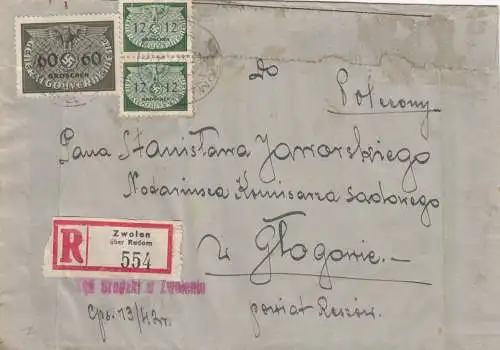 60 60
GROSCHEN
12 12
GROSCHEN
12 12
GROSCHEN
Do
Polecony
Pana Stanisława Jaworskiego
Notariusza Komisarza Sądowego
w Głogowie.
powiat Rzeszów.
R
Zwolen
über Radom
554
Sąd Grodzki w Zwoleniu
Cps. 13/42r.